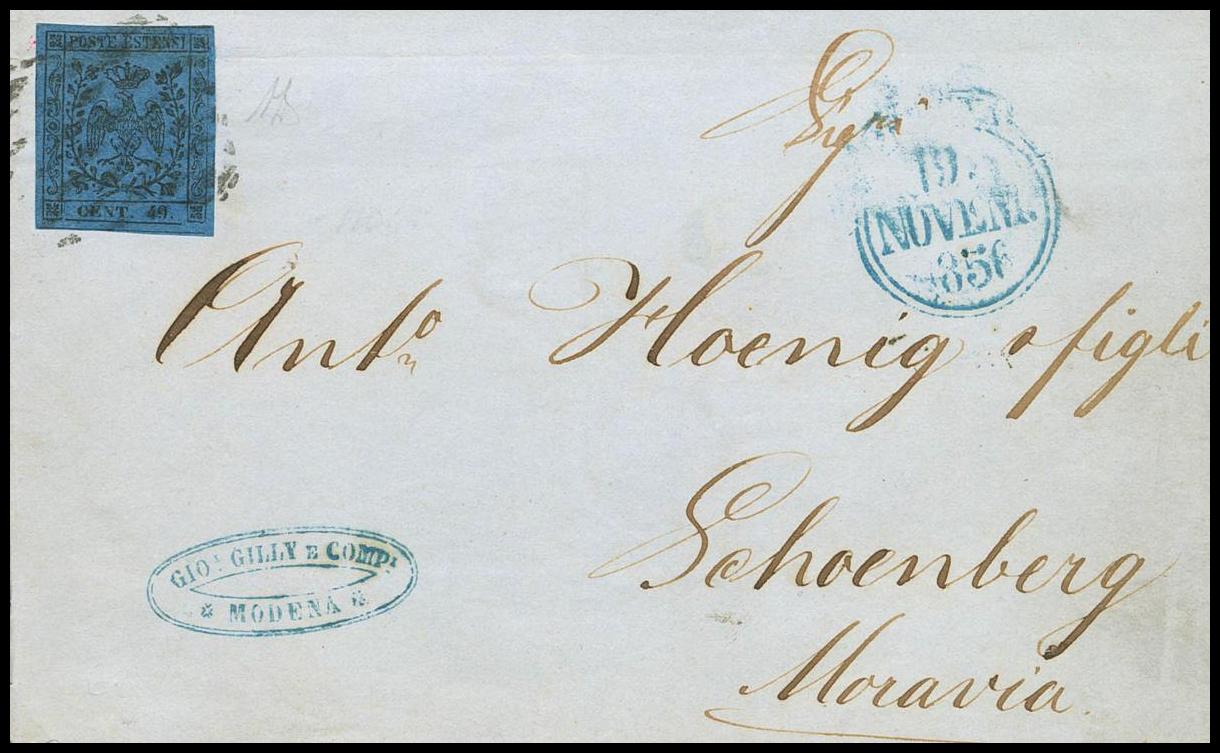 POSTE ESTENSI
CENT. 49.
Sigri
19
NOVEM.
1856
Anto Hoenig e figli
Schoenberg
Moravia
GIO. GILLY E COMP.
MODENA